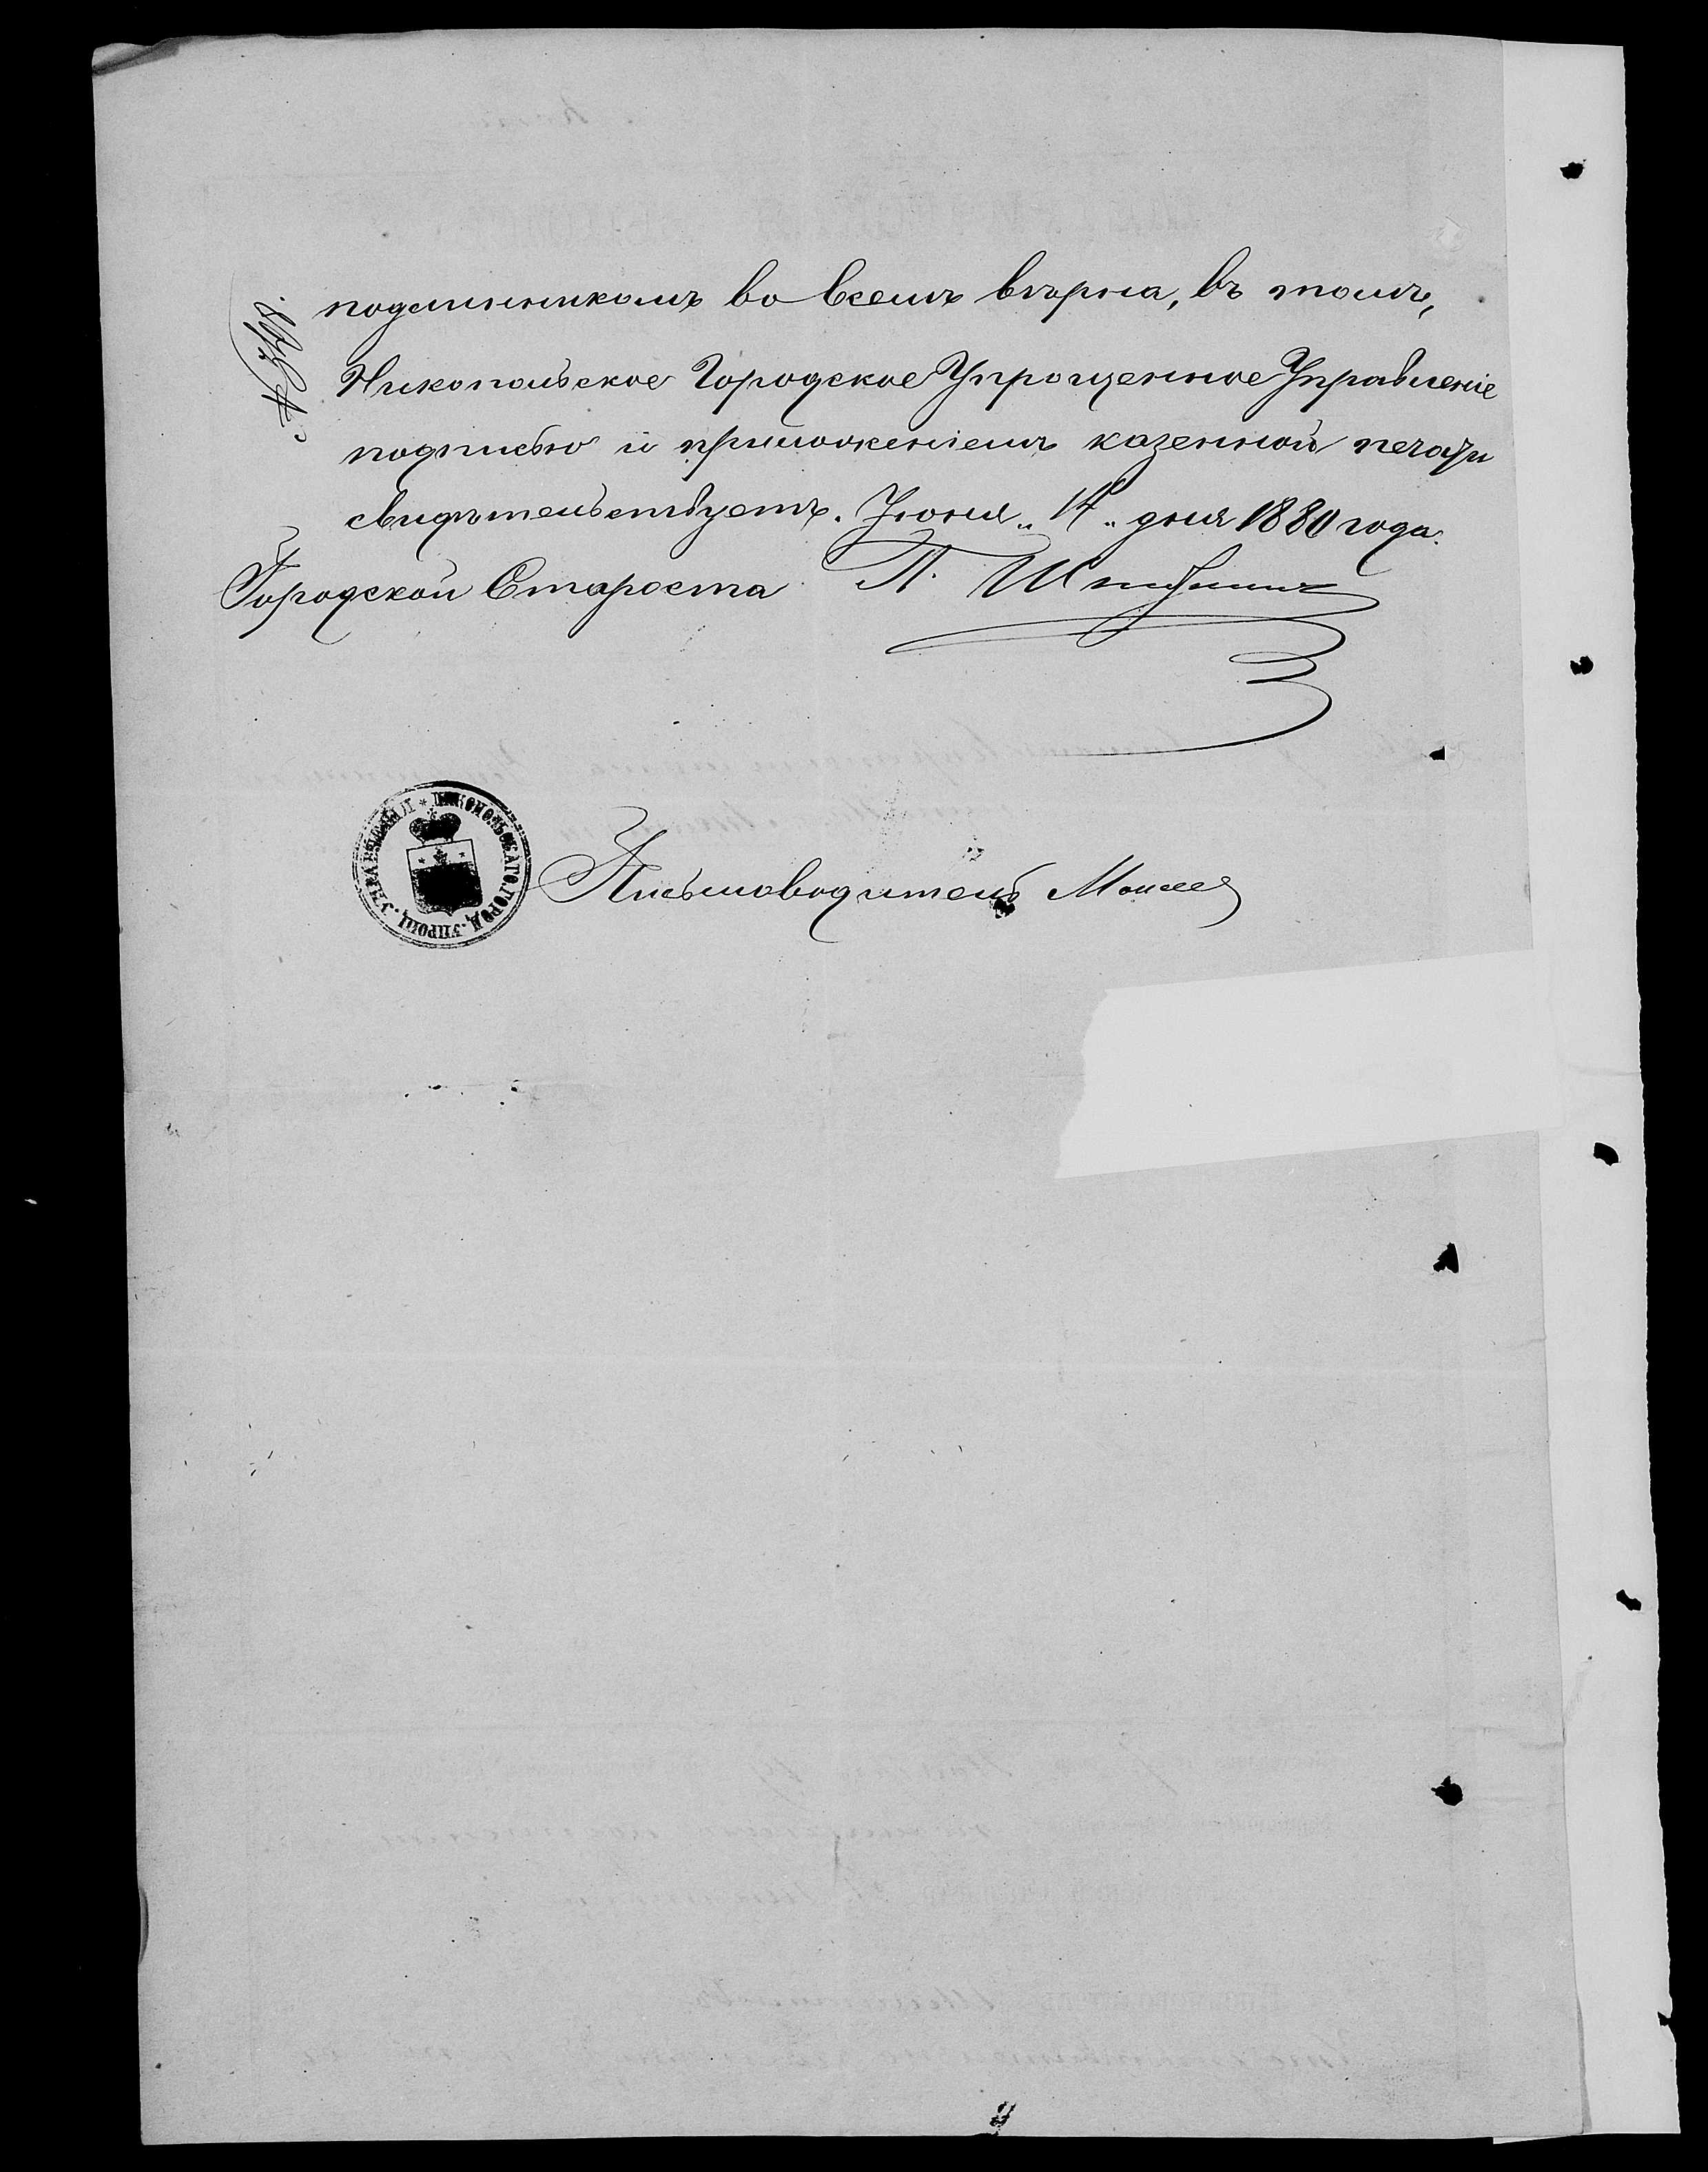 подлинникомъ во всемъ вѣрна, въ томъ,
Никопольское Городское Упрощенное Управленіе
подписью и приложеніемъ казенной печати
свидѣтельствуетъ. Іюня „14„ дня 1880 года.
Городской Староста П.
НИКОПОЛЬСКАГО ГОРОД. УПРОЩ. УПРАВЛЕНІЯ
Письмоводитель